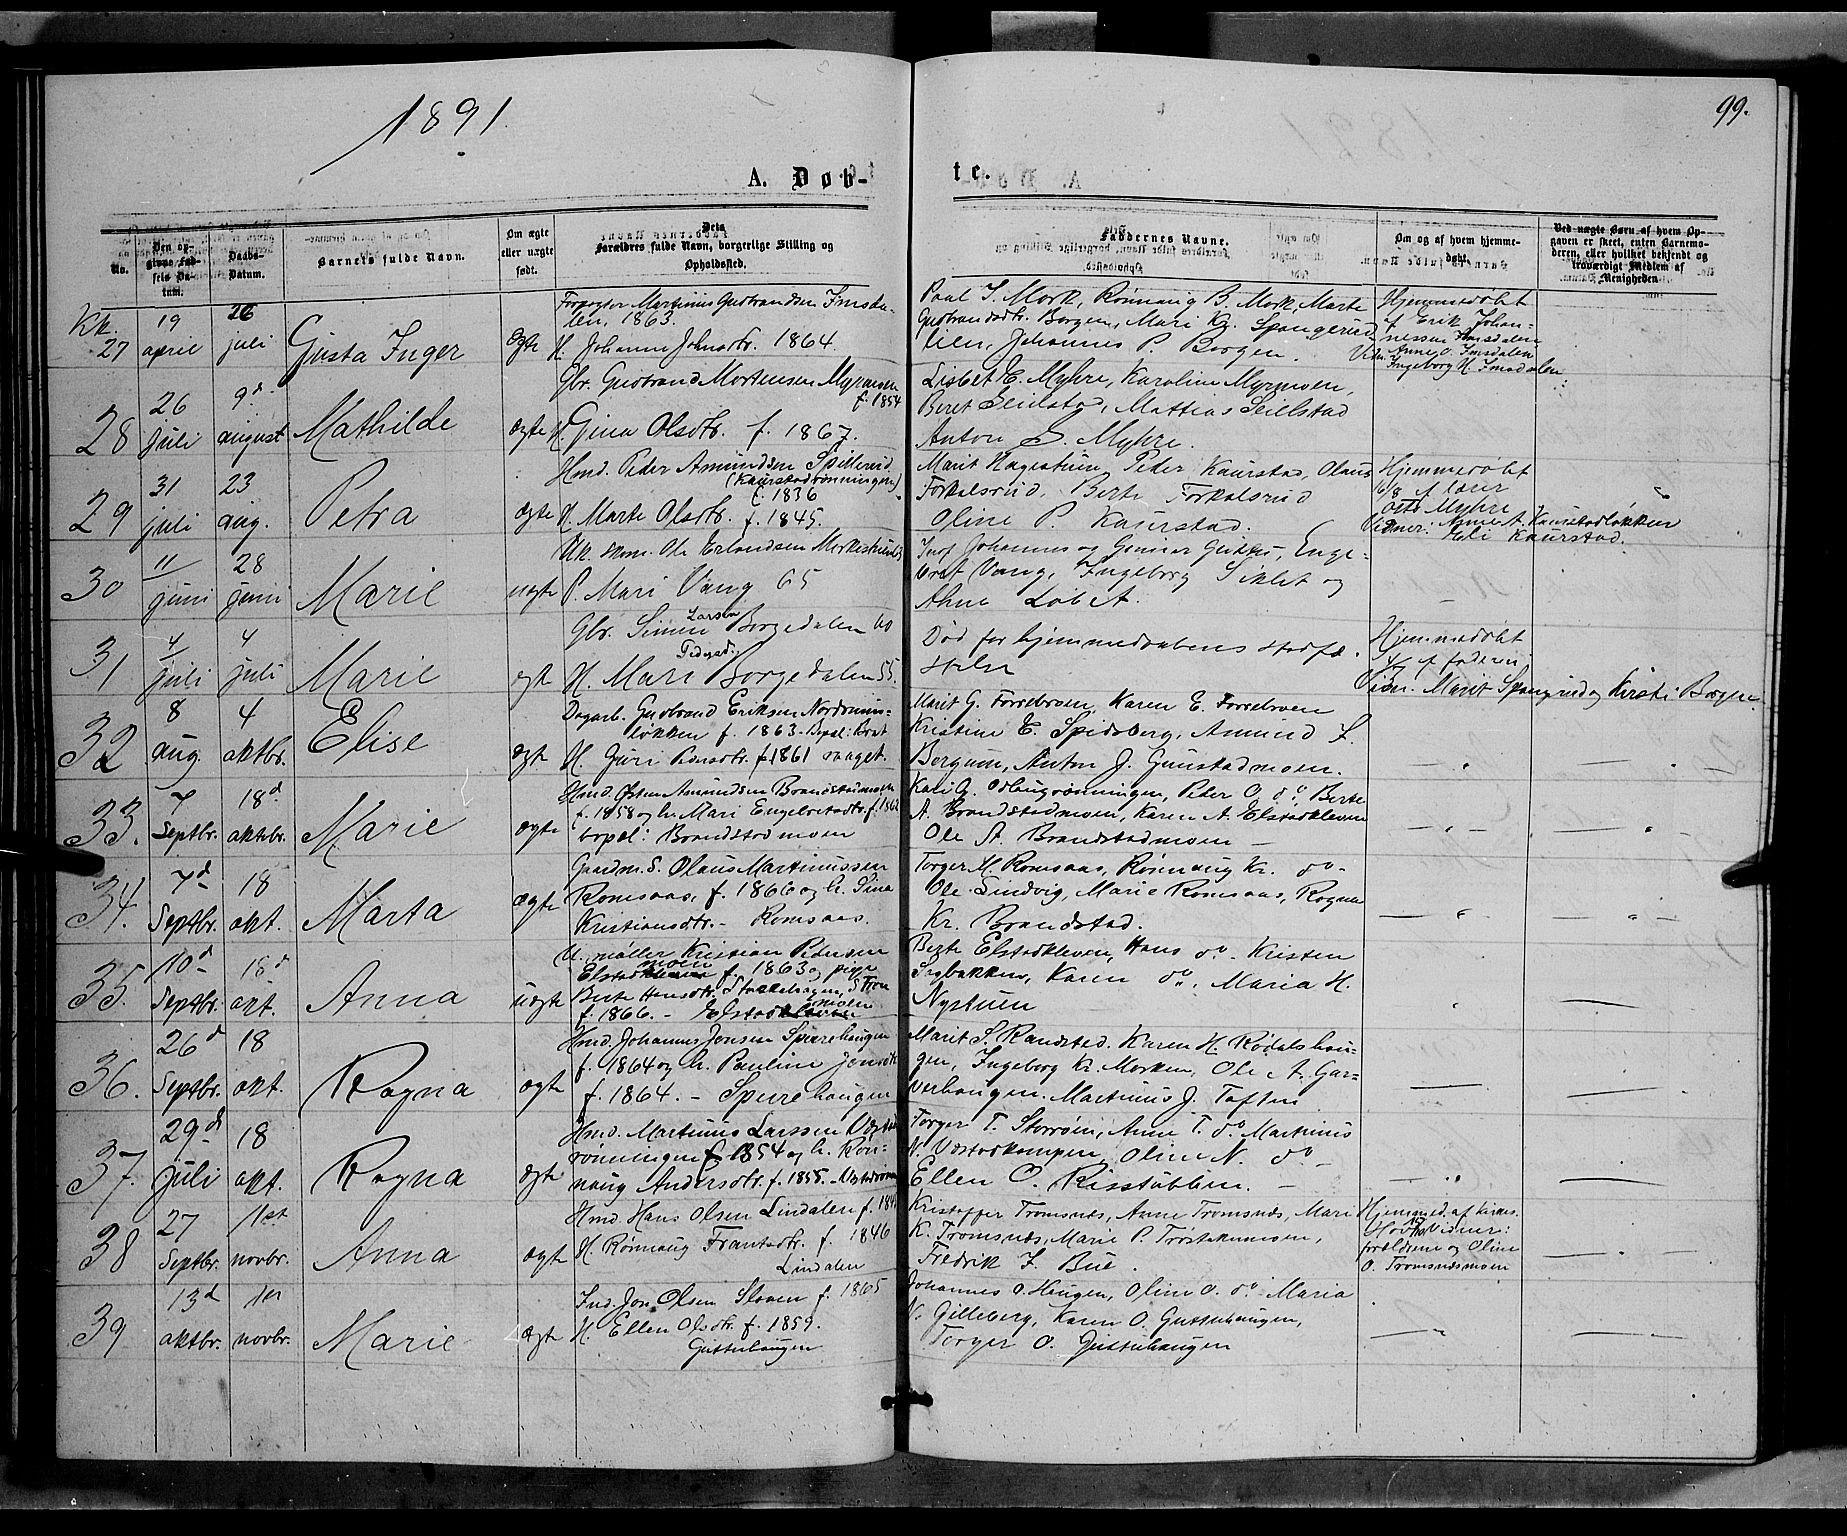 1891.
99.
A. Døb-
te.
No.
Den opgivne Fødsels Datum.
Daabs-Datum.
Barnets fulde Navn.
Om ægte eller uægte født.
Dets Forældres fulde Navn, borgerlige Stilling og Opholdssted.
Faddernes Navne.
Om og af hvem hjemmedøbt.
Ved uægte Børn af hvem Opgaven er skeet, enten Barnemoderen, eller hvilket bekjendt og troværdigt Medlem af Menigheden.
Kk.
27
19 april
26 juli
Gusta Inger
ægte
Martinus Gudbrandsen Imsdalen, 1863.
H. Johanne Johnsdtr. 1864.
Paul J. Mork, Rønnaug B. Mork, Marte
Gudbrandsdtr. Borgen, Mari Kr. Spangerud
lien, Johannes P. Borgen.
Hjemmedøbt
af Erik Johannessen Imsdalen
Vidn. Anne O. Imsdalen
Ingeborg H. Imsdalen
28
26 juli
9d august
Mathilde
ægte
Gbr. Gudbrand Mortensen Myrmoen
f. 1854
H. Gina Olsdtr. f. 1867.
Lisbet E. Myhre, Karoline Myrmoen,
Beret Seielstad, Mattias Seielstad
Anton S. Myhre.
29
31 juli
23 aug.
Petra
ægte
Hmd. Peder Amundsen Spillerud
(Kaurstadrønningen)
f. 1836
H. Marte Olsdtr. f. 1845.
Marit Hagestuen, Peder Kaurstad, Olaus
Forkalsrud, Berte Forkalsrud
Oline P. Kaurstad.
Hjemmedøbt
16/8 af lærer
Myhre
Vidner: Anne A. Kaurstadløkken
Kaurstad.
30
11 juni
28 juni
Marie
uægte
Uk. skom. Ole Erlandsen
P. Mari Vang 65
Johannes og Gunnar
Vang, Ingeborg Siklet og
Anne Løbet.
31
4 juli
4 juli
Marie
ægte
Gbr. Simen Larsen Borgedalen 60
H. Mari Pedersd. Borgedalen 55.
Død før hjemmedaabens stadfæstelse
Hjemmedøbt
af faderen
Vidn. Marit Spangrud og Kirsti Borgen.
32
8 aug.
4 oktbr.
Elise
ægte
Dagarb. Gudbrand Eriksen
løkken f. 1863.
H. Juri f. 1861
Marit G. Forrebroen, Karen E. Forrebroen
Kristine E. Spidsberg, Amund L.
Bergum, Anton J. Gunstadmoen.
33.
7 Septbr.
18d oktbr.
Marie
ægte
Hmd. Østen Amundsen Brandstadmoen
f. 1858 og h. Mari Engebretsdtr. f. 1862
bopæl: Brandstadmoen
Kari G. Odlaugrønningen, Peder O. do Berte
A. Brandstadmoen, Karen A. Elstadkleven
Ole A. Brandstadmoen
34.
7d Septbr.
18 okt.
Marta
ægte
Gaardm. S. Olaus Martinussen
Romsaas, f. 1866 og h. Sina
Kristiansdtr. - Romsaas.
Torger M. Romsaas, Rønnaug Kr. do
Ole Lindvig, Marie Romsaas, Ragna
Kr. Brandstad.
35.
10d Septbr.
18d okt.
Anna
uægte
U. møller Kristian Pedersen
Elstadmoen f. 1863 og pige
Berte Hansdtr.
f. 1866. - Elstadmoen
Berte Elstadkleven, Hans do. Kristen
Karen do, Maria H.
Nystuen
36.
26d Septbr.
18 okt.
Ragna
ægte
Hmd. Johannes Jensen Spurrehaugen
f. 1864 og h. Pauline Jensdtr.
f. 1864. - Spurrehaugen
Marit S. Randsted, Karen H. Rødalshaugen,
Ingeborg Kr. Morken, Ole A. Garverhaugen,
Martinus J. Toften
37.
29d juli
18 okt.
Ragna
ægte
Hmd. Martinus Larssen
rønningen f. 1854 og h. Rønnaug
Andersdtr. f. 1855.
Torger T. Storrøen, Anne T. do. Martinus
N. Vestadkampen, Oline N. do
Ellen O. Risstubben.
38
27 Septbr.
1st novbr.
Anna
ægte
Hmd. Hans Olsen Lindalen
H. Rønnaug Frantsdtr. f. 1846
Lindalen
Kristoffer Tromsnæs, Anne Tromsnæs, Mari
K. Tromsnæs, Marie P.
Fredrik F. Bue.
Hjemmed. af
Vidner:
forældrene og Oline
O. Tromsnæsmoen
39
13d oktbr.
1st novbr.
Marie
ægte
Ind. Jon Olsen Sloven f. 1865
H. Ellen Olsdtr. f. 1859.
Gutterhaugen
Johannes O. Haugen, Oline O. do Maria
N. Gilleberg, Karen O. Gutterhaugen,
Torger O. Gutterhaugen